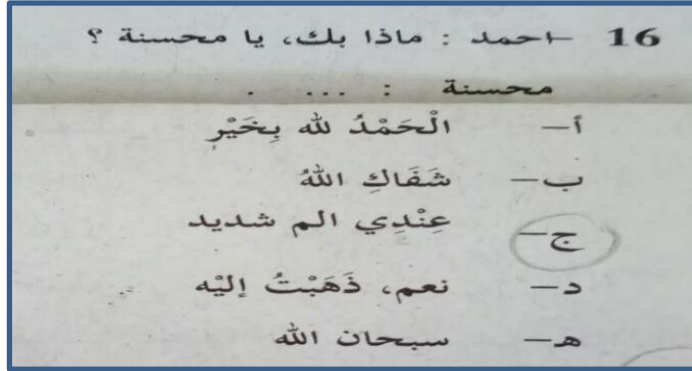 16 –احمد : ماذا بك، يا محسنة ؟
محسنة : ... .
أ– الْحَمْدُ لله بِخَيْرٍ
ب– شَفَاكِ اللهُ
ج– عِنْدِي الم شديد
د– نعم، ذَهَبْتُ إليْه
هـ– سبحان الله